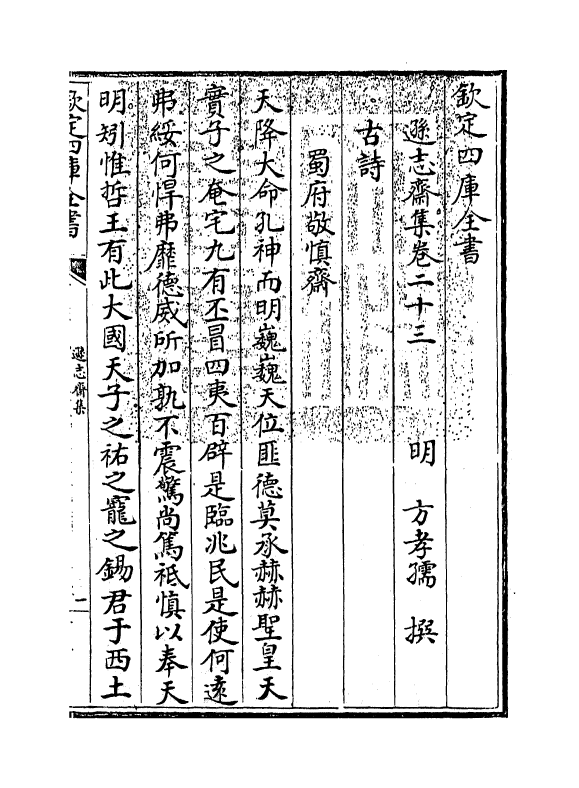 欽定四庫全書
遜志齋集卷二十三
明 方孝孺 撰
古詩
蜀府敬慎齋
天降大命孔神而明巍巍天位匪德莫承赫赫聖皇天
實子之奄宅九有丕冒四夷百辟是臨兆民是使何遠
弗綏何悍弗靡德威所加孰不震驚尚篤祗慎以奉天
明矧惟哲王有此大國天子之祐之寵之錫君于西土
欽定四庫全書
遜志齋集
一